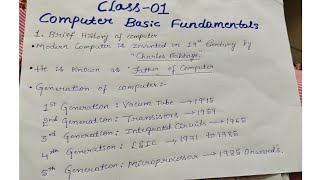 Class-01
Computer Basic Fundamentals
1. Brief History of computer
• Modern Computer is Invented in 19th Century by
"Charles Babbage"
• He is Known as "Father of Computer"
• Generation of Computer:-
1st Generation: Vacum Tube → 1945
2nd Generation: Transistors → 1959
3rd Generation: Integrated Circuits → 1965
4th Generation: LSIC → 1971 to 1985
5th Generation: Microprocessor → 1985 Onwards.